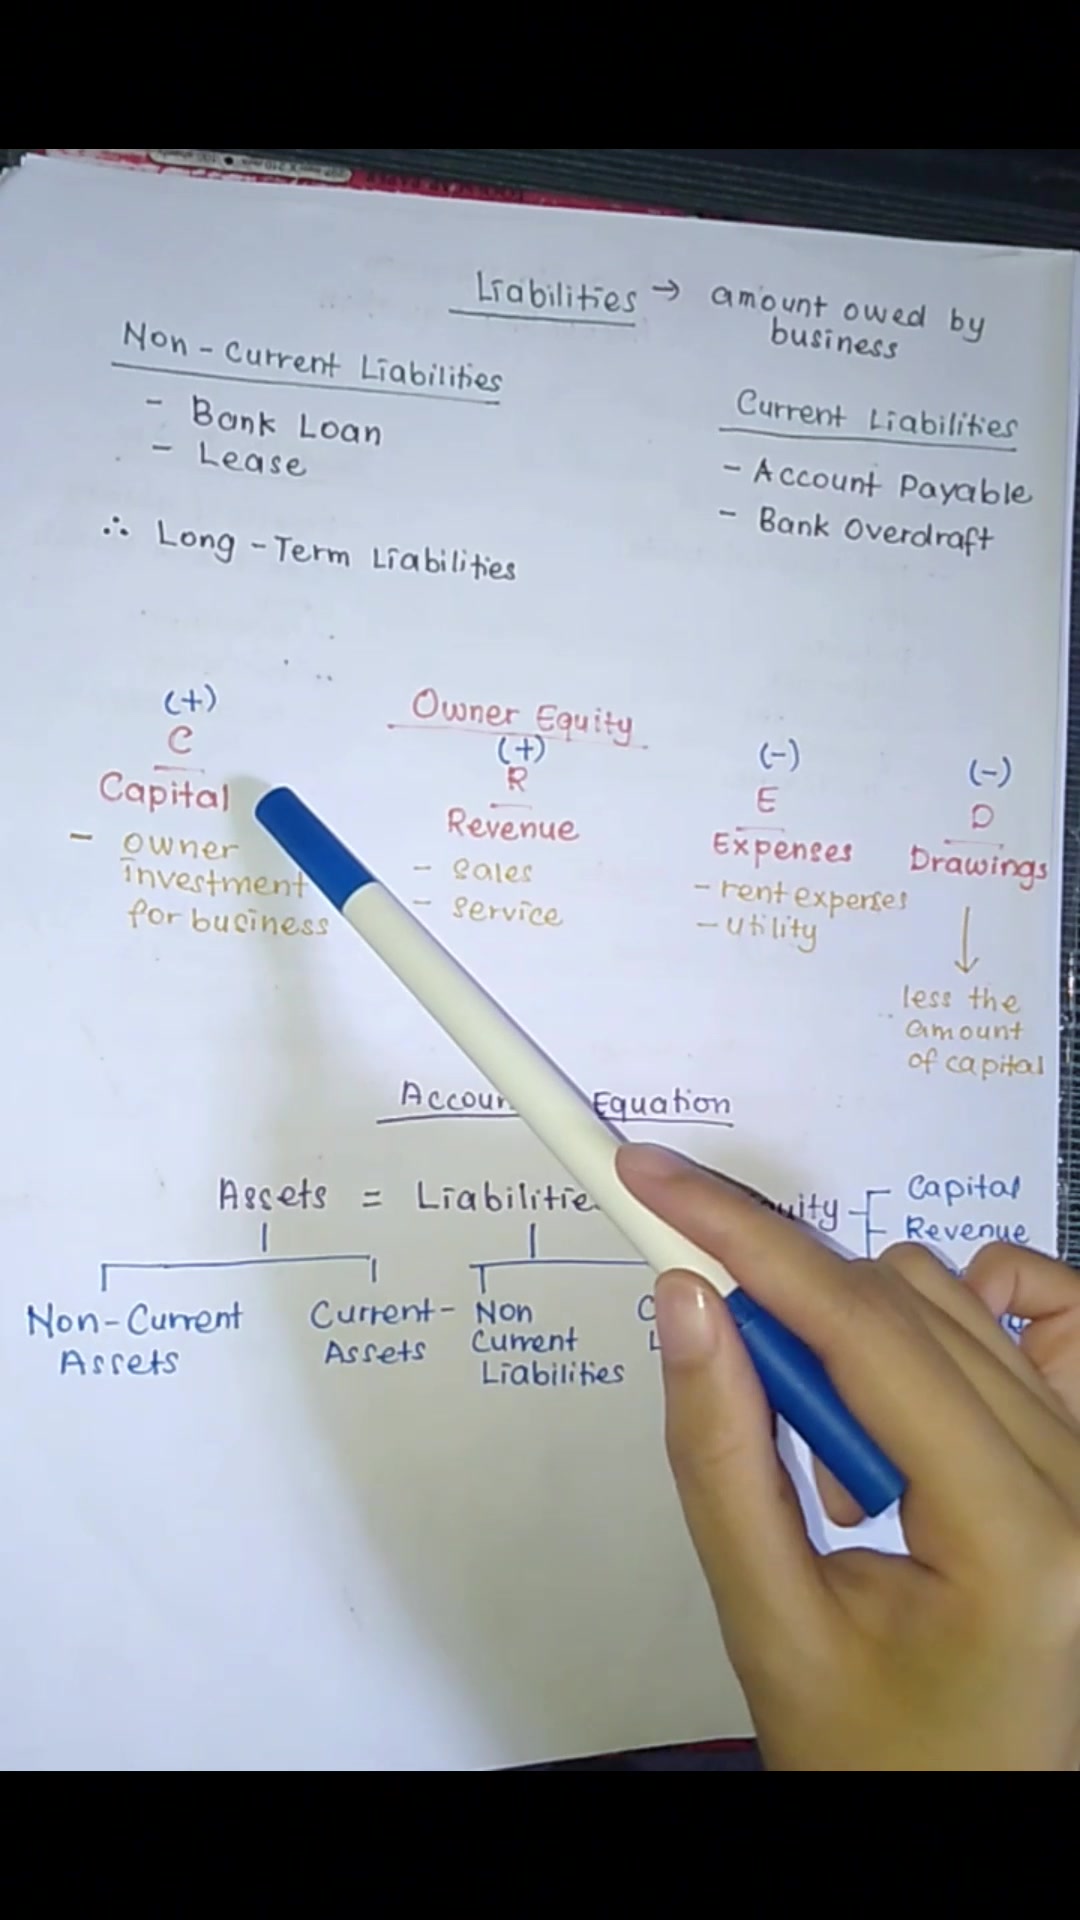 Liabilities → amount owed by
business
Non - Current Liabilities
- Bank Loan
- Lease
∴ Long - Term Liabilities
Current Liabilities
- Account Payable
- Bank Overdraft
Owner Equity
(+)
C
Capital
- owner
investment
for business
(+)
R
Revenue
- sales
- service
(-)
E
Expenses
- rent expenses
- utility
(-)
D
Drawings
↓
less the
amount
of capital
Equation
Assets = Liabilities
Capital
Revenue
Non-Current
Assets
Current-
Assets
Non
Current
Liabilities